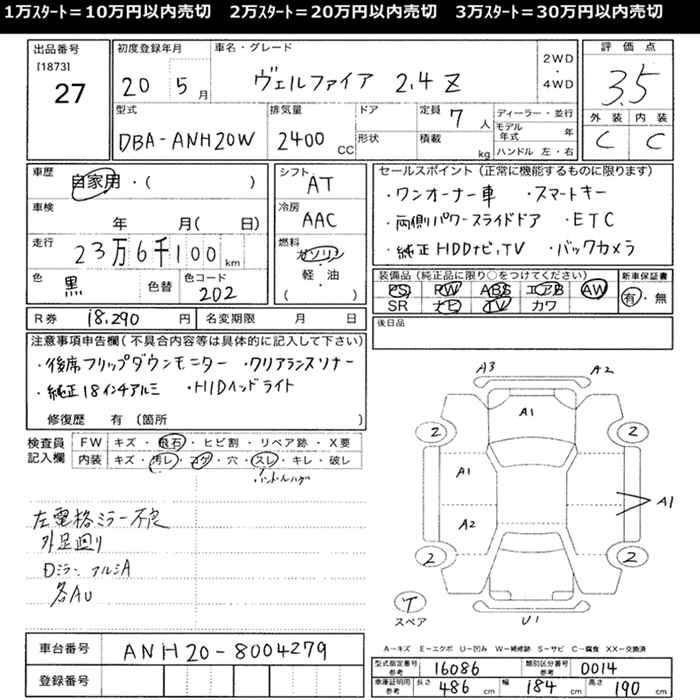 1万スタート＝10万円以内売切　2万スタート＝20万円以内売切　3万スタート＝30万円以内売切
出品番号
[1873]
27
初度登録年月
20 5月
車名・グレード
ヴェルファイア 2.4 Z
2WD
・
4WD
評価点
3.5
外装 内装
C C
型式
DBA-ANH20W
排気量
2400 CC
ドア
形状
定員 7 人
積載 kg
ディーラー・並行
モデル年式 年
ハンドル 左・右
車歴
自家用・( )
車検
年 月( 日)
走行
23万6千100 km
色
黒
色替
色コード
202
シフト
AT
冷房
AAC
燃料
ガソリン
・
軽・油
( )
セールスポイント（正常に機能するものに限ります）
・ワンオーナー車 ・スマートキー
・両側パワースライドドア ・ETC
・純正HDDナビ,TV ・バックカメラ
装備品（純正品に限り○をつけてください）
PS PW ABS エアB AW
SR ナビ TV カワ
新車保証書
有・無
後日品
R券 18,290 円
名変期限 月 日
注意事項申告欄（不具合内容等は具体的に記入して下さい）
・後席フリップダウンモニター ・クリアランスソナー
・純正18インチアルミ ・HIDヘッドライト
修復歴 有（箇所 ）
検査員記入欄
FW キズ・飛石・ヒビ割・リペア跡・X要
内装 キズ・汚レ・コゲ・穴・スレ・キレ・破レ
・ハンドルハゲ
左電格ミラー不良
外足廻り
Dミラー、アルミA
各AU
A3 A2
A1
2 2
A1
A1
A2
2 2
T
スペア
U1
A-キズ E-エクボ U-凹み W-補修跡 S-サビ C-腐食 XX-交換済
車台番号 ANH20-8004279
登録番号
型式指定番号 参考 16086
類別区分番号 参考 0014
車庫証明用 参考 長さ 486 cm 幅 184 cm 高さ 190 cm